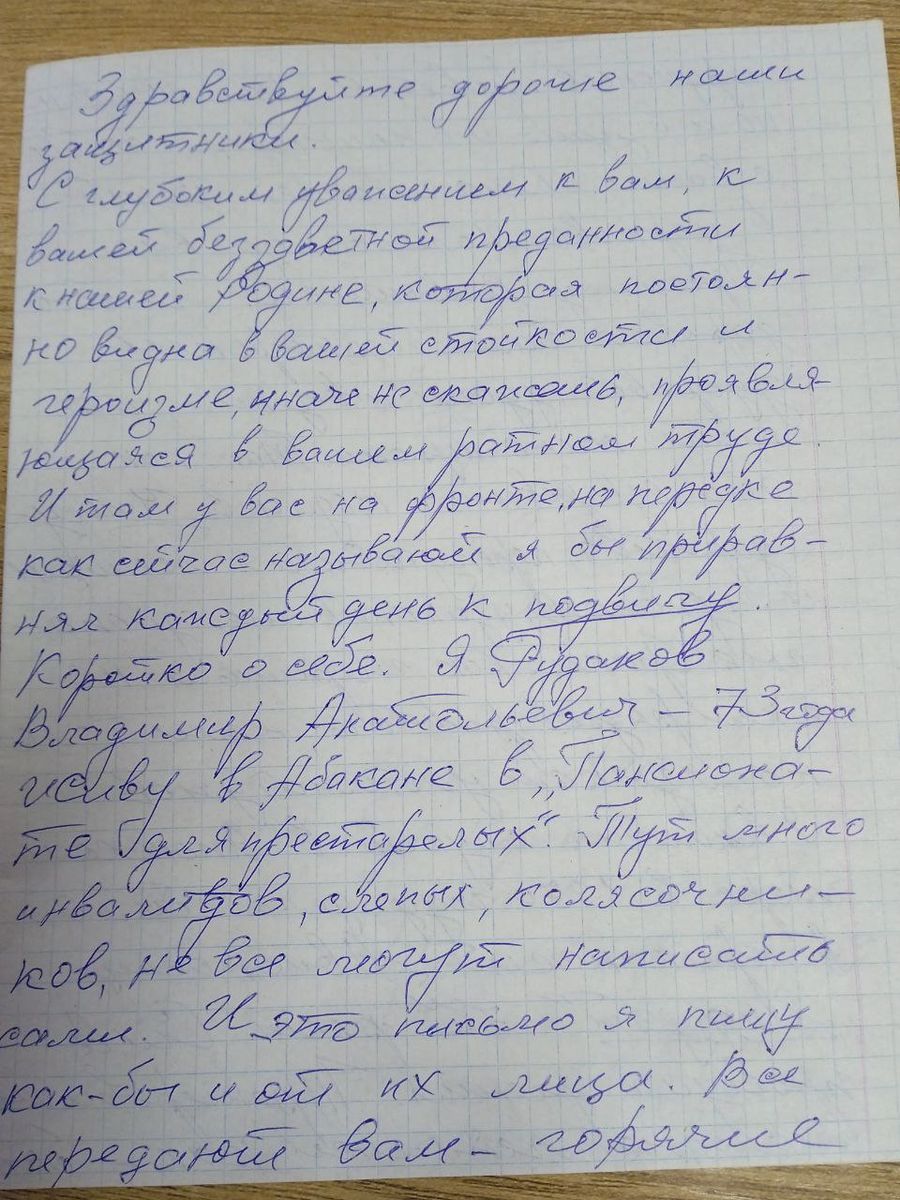 Здравствуйте дорогие наши
защитники.
С глубоким уважением к вам, к
вашей беззаветной преданности
к нашей Родине, которая постоян-
но видна в вашей стойкости и
героизме, иначе не скажешь, проявля-
ющаяся в вашем ратном труде.
И там у вас на фронте, на передке
как сейчас называют я бы прирав-
нял каждый день к подвигу.
Коротко о себе. Я Рудаков
Владимир Анатольевич – 73 года
живу в Абакане в „Пансиона-
те для престарелых". Тут много
инвалидов, слепых, колясочни-
ков, не все могут написать
сами. И это письмо я пишу
как-бы и от их лица. Все
передают вам – горячие